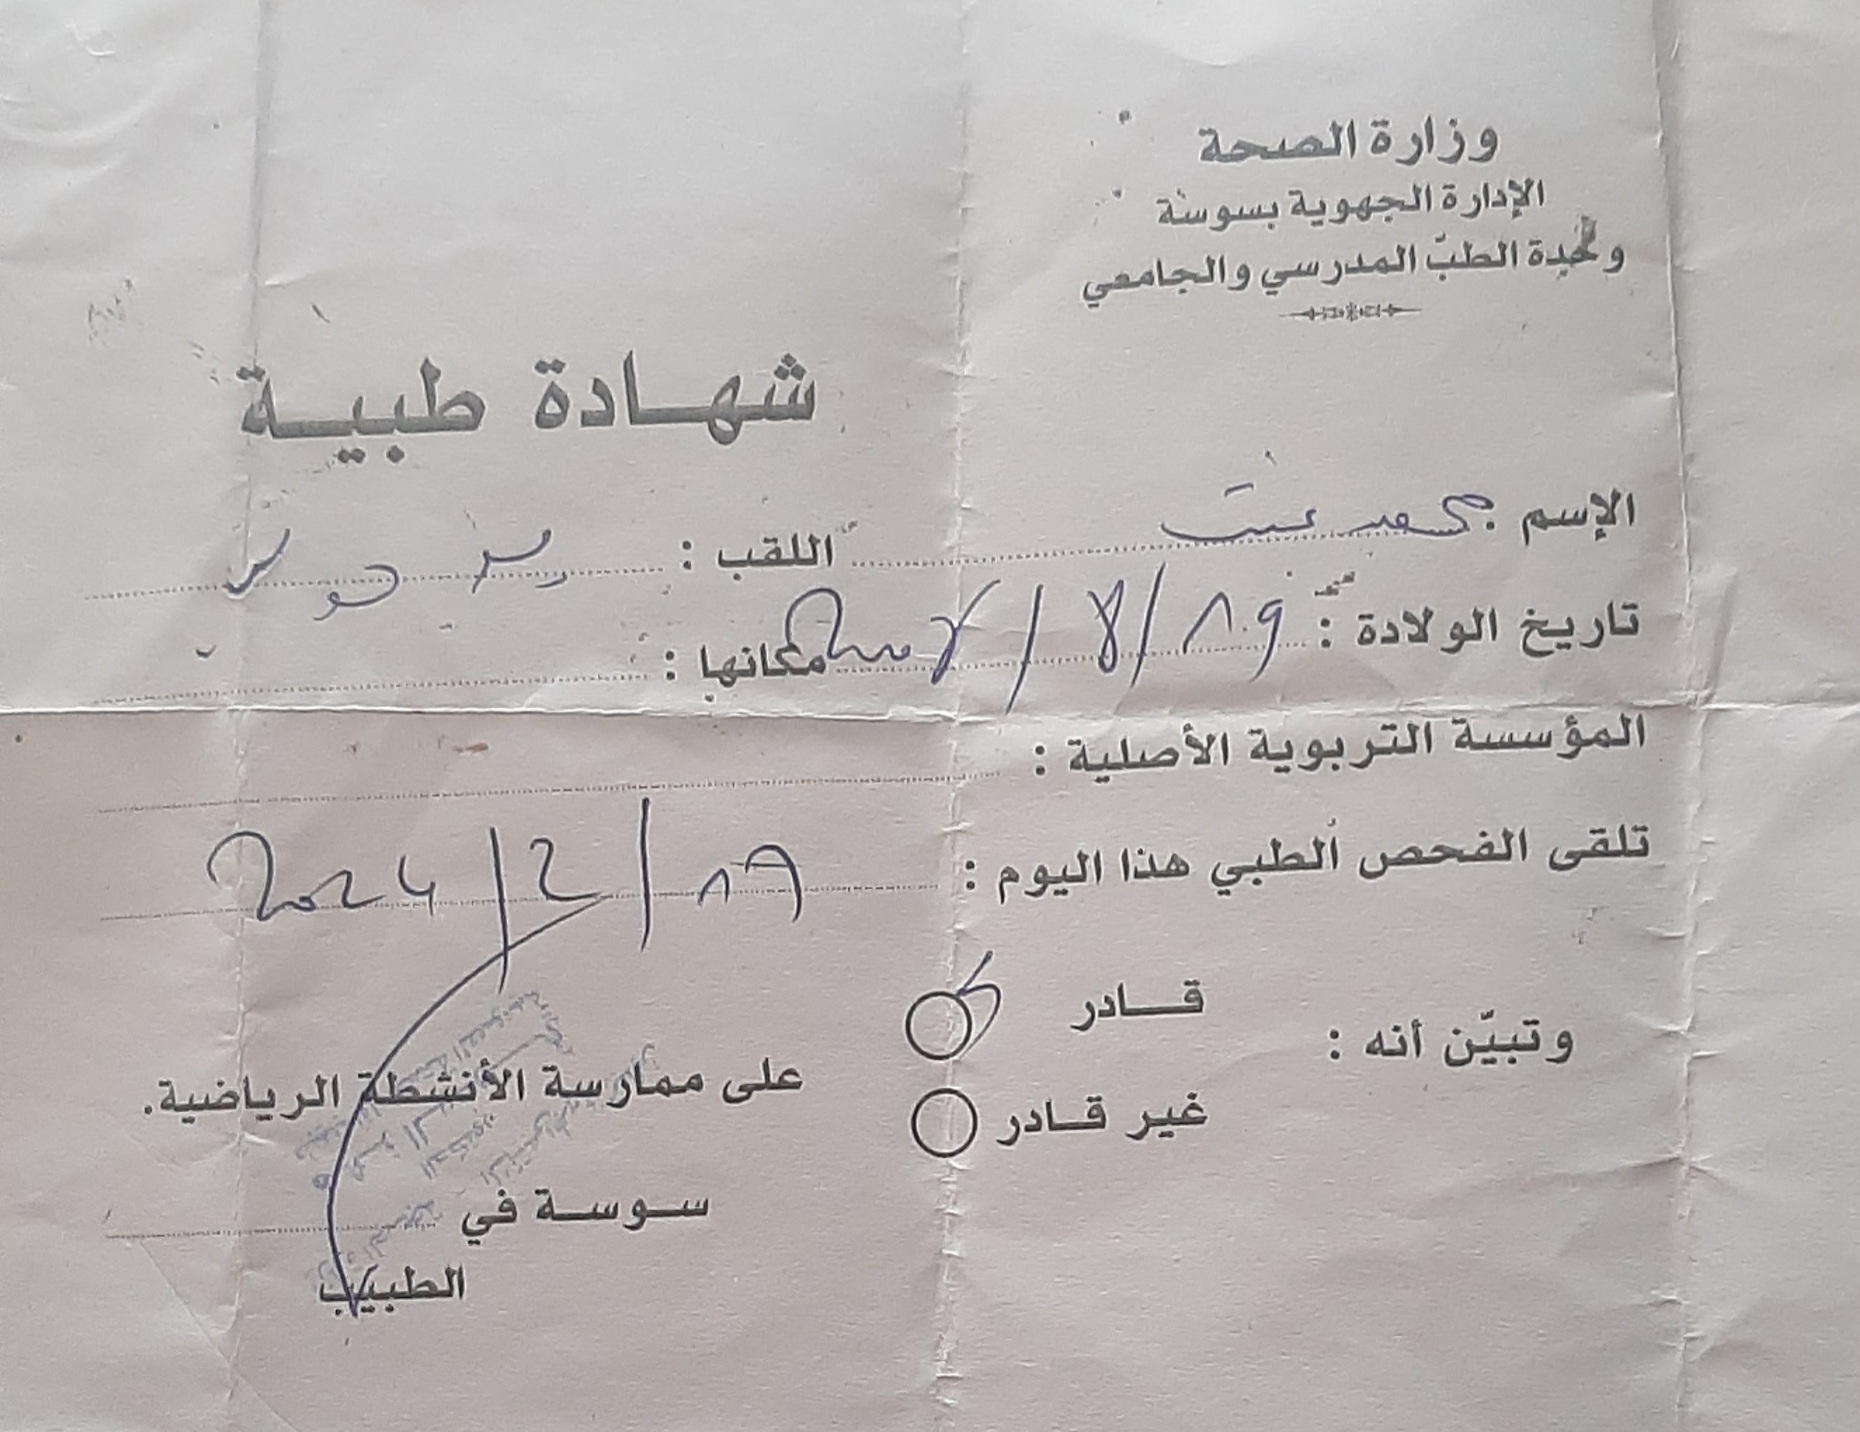 وزارة الصحة
الإدارة الجهوية بسوسة
وحدة الطبّ المدرسي والجامعي
شهادة طبية
الإسم : محمد اللقب :
تاريخ الولادة : مكانها :
المؤسسة التربوية الأصلية :
تلقى الفحص الطبي هذا اليوم : 19/2/2024
وتبيّن أنه :
قادر
غير قادر
على ممارسة الأنشطة الرياضية.
سوسة في
الطبيب